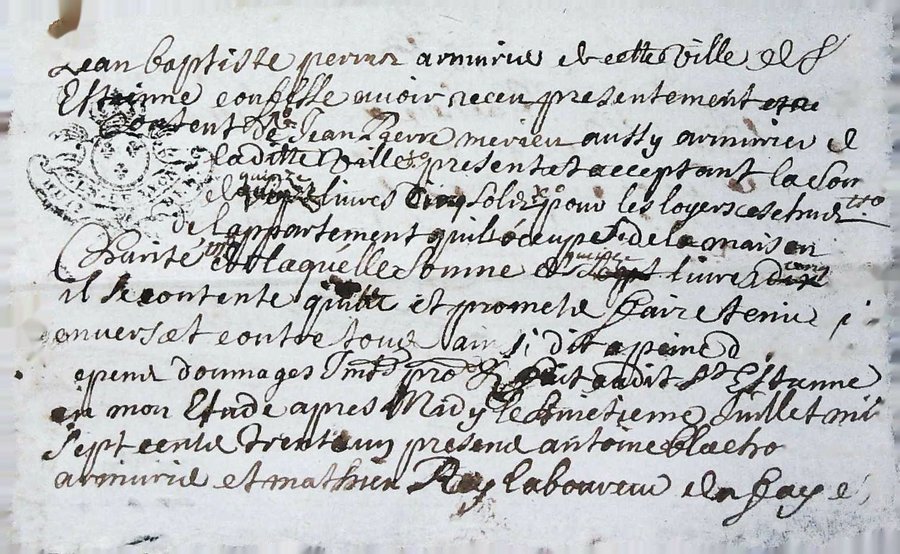 Jean baptiste perrin armurier de cette ville de St
Estienne confesse avoir receu presentement et
contant de Jean Pierre merieu aussy armurier de
laditte ville present et acceptant la som
de quinze livres cinq solz pour les loyers escheus
de lappartement quil occupe de la maison
Charité de laquelle somme de quinze livres cinq
il se contente quitte et promet faire tenir
envers et contre tous ainsi dit a peine d
epens dommages Intts pro fait audit St Estienne
en mon Etude apres Midy le huictieme Juillet mil
sept cents trente un presens antoine blacho
armurier et mathieu Rey laboureur de